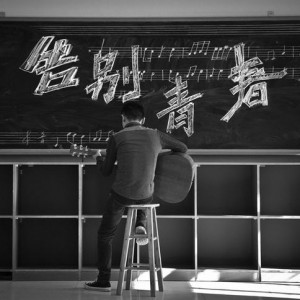 告别青春